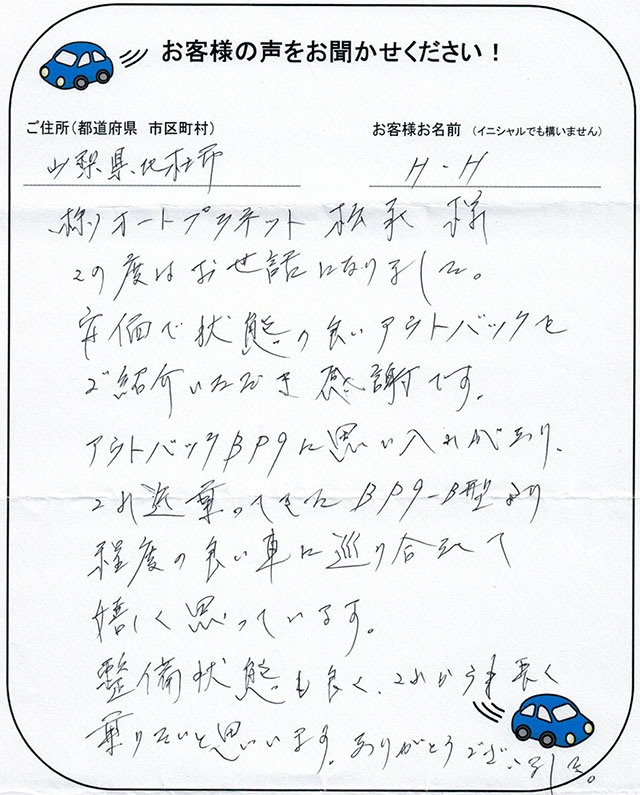 お客様の声をお聞かせください！
ご住所（都道府県　市区町村）
お客様お名前　（イニシャルでも構いません）
山梨県北杜市
H・H
㈱オートプラネット　松永　様
この度はお世話になりました。
安価で状態の良いアウトバックを
ご紹介いただき感謝です。
アウトバックBP9に思い入れがあり、
これ迄乗ってきたBP9-B型より
程度の良い車に巡り合えて
嬉しく思っています。
整備状態も良く、これからも長く
乗りたいと思います。ありがとうございました。